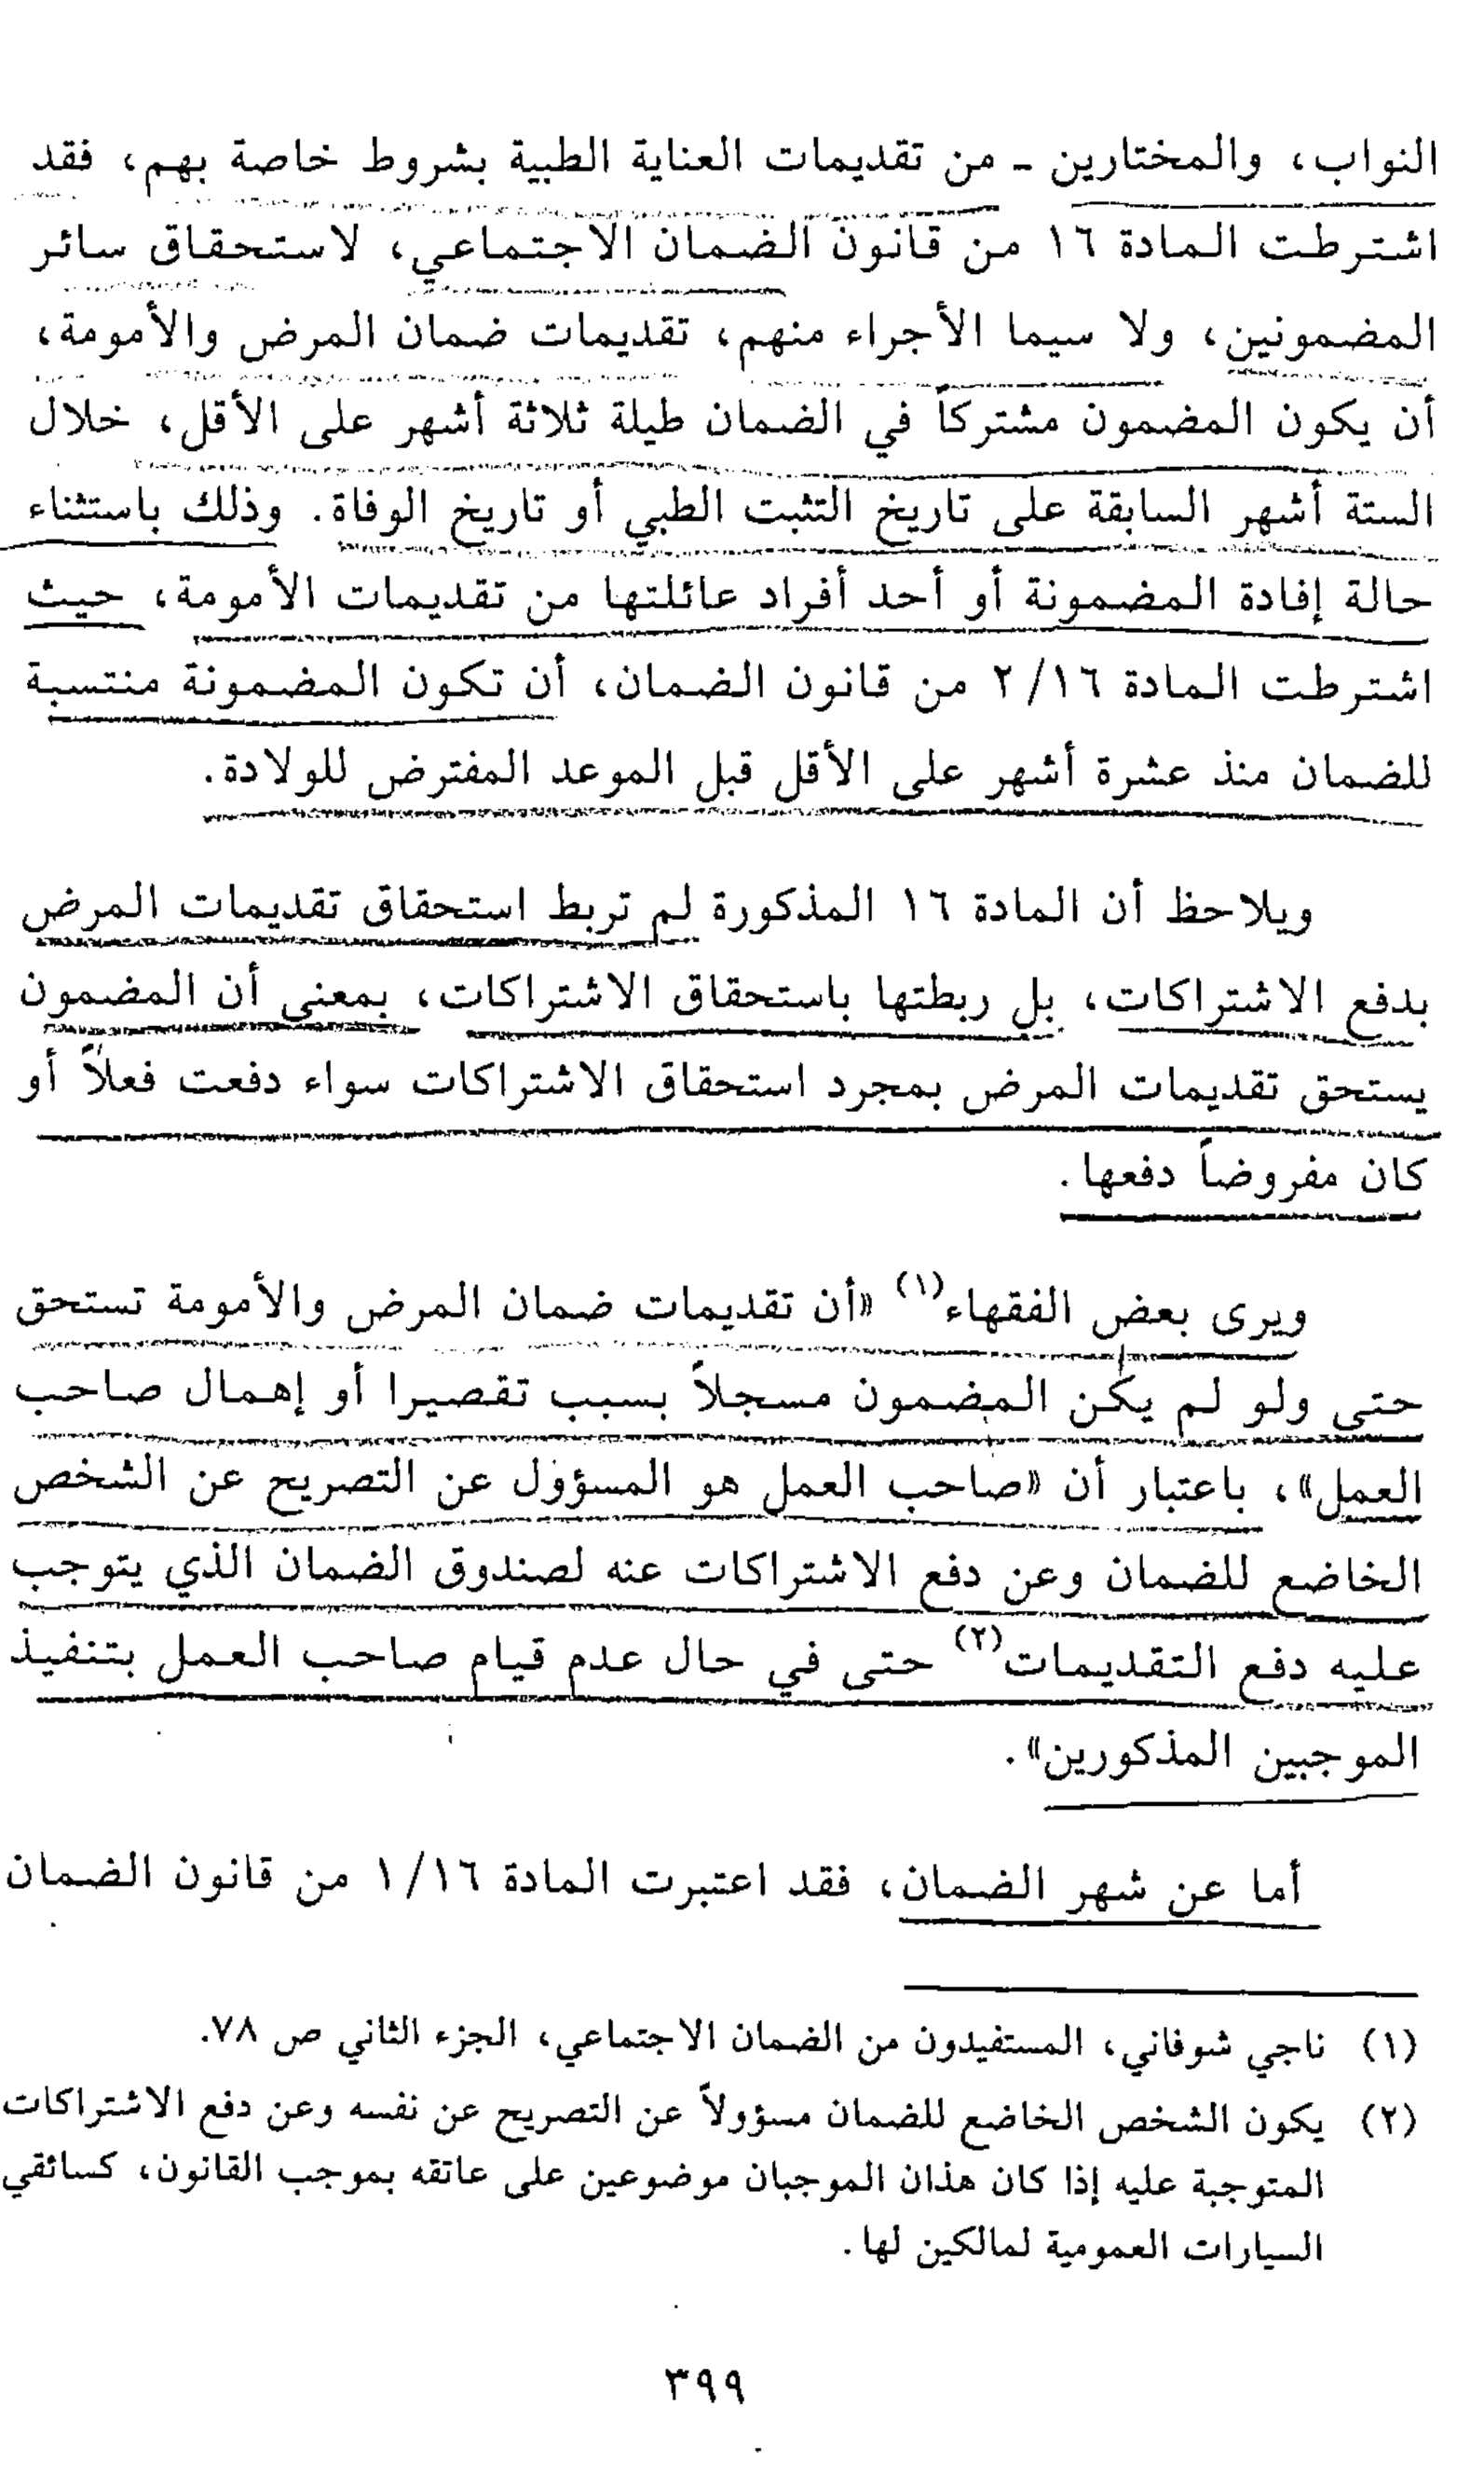 النواب، والمختارين ـ من تقديمات العناية الطبية بشروط خاصة بهم، فقد
اشترطت المادة ١٦ من قانون الضمان الاجتماعي، لاستحقاق سائر
المضمونين، ولا سيما الأجراء منهم، تقديمات ضمان المرض والأمومة،
أن يكون المضمون مشتركاً في الضمان طيلة ثلاثة أشهر على الأقل، خلال
الستة أشهر السابقة على تاريخ التثبت الطبي أو تاريخ الوفاة. وذلك باستثناء
حالة إفادة المضمونة أو أحد أفراد عائلتها من تقديمات الأمومة، حيث
اشترطت المادة ٢/١٦ من قانون الضمان، أن تكون المضمونة منتسبة
للضمان منذ عشرة أشهر على الأقل قبل الموعد المفترض للولادة.
ويلاحظ أن المادة ١٦ المذكورة لم تربط استحقاق تقديمات المرض
بدفع الاشتراكات، بل ربطتها باستحقاق الاشتراكات، بمعنى أن المضمون
يستحق تقديمات المرض بمجرد استحقاق الاشتراكات سواء دفعت فعلاً أو
كان مفروضاً دفعها.
ويرى بعض الفقهاء(١) «أن تقديمات ضمان المرض والأمومة تستحق
حتى ولو لم يكن المضمون مسجلاً بسبب تقصيرا أو إهمال صاحب
العمل»، باعتبار أن «صاحب العمل هو المسؤول عن التصريح عن الشخص
الخاضع للضمان وعن دفع الاشتراكات عنه لصندوق الضمان الذي يتوجب
عليه دفع التقديمات(٢) حتى في حال عدم قيام صاحب العمل بتنفيذ
الموجبين المذكورين».
أما عن شهر الضمان، فقد اعتبرت المادة ١/١٦ من قانون الضمان
(١) ناجي شوفاني، المستفيدون من الضمان الاجتماعي، الجزء الثاني ص ٧٨.
(٢) يكون الشخص الخاضع للضمان مسؤولاً عن التصريح عن نفسه وعن دفع الاشتراكات
المتوجبة عليه إذا كان هذان الموجبان موضوعين على عاتقه بموجب القانون، كسائقي
السيارات العمومية لمالكين لها.
٣٩٩